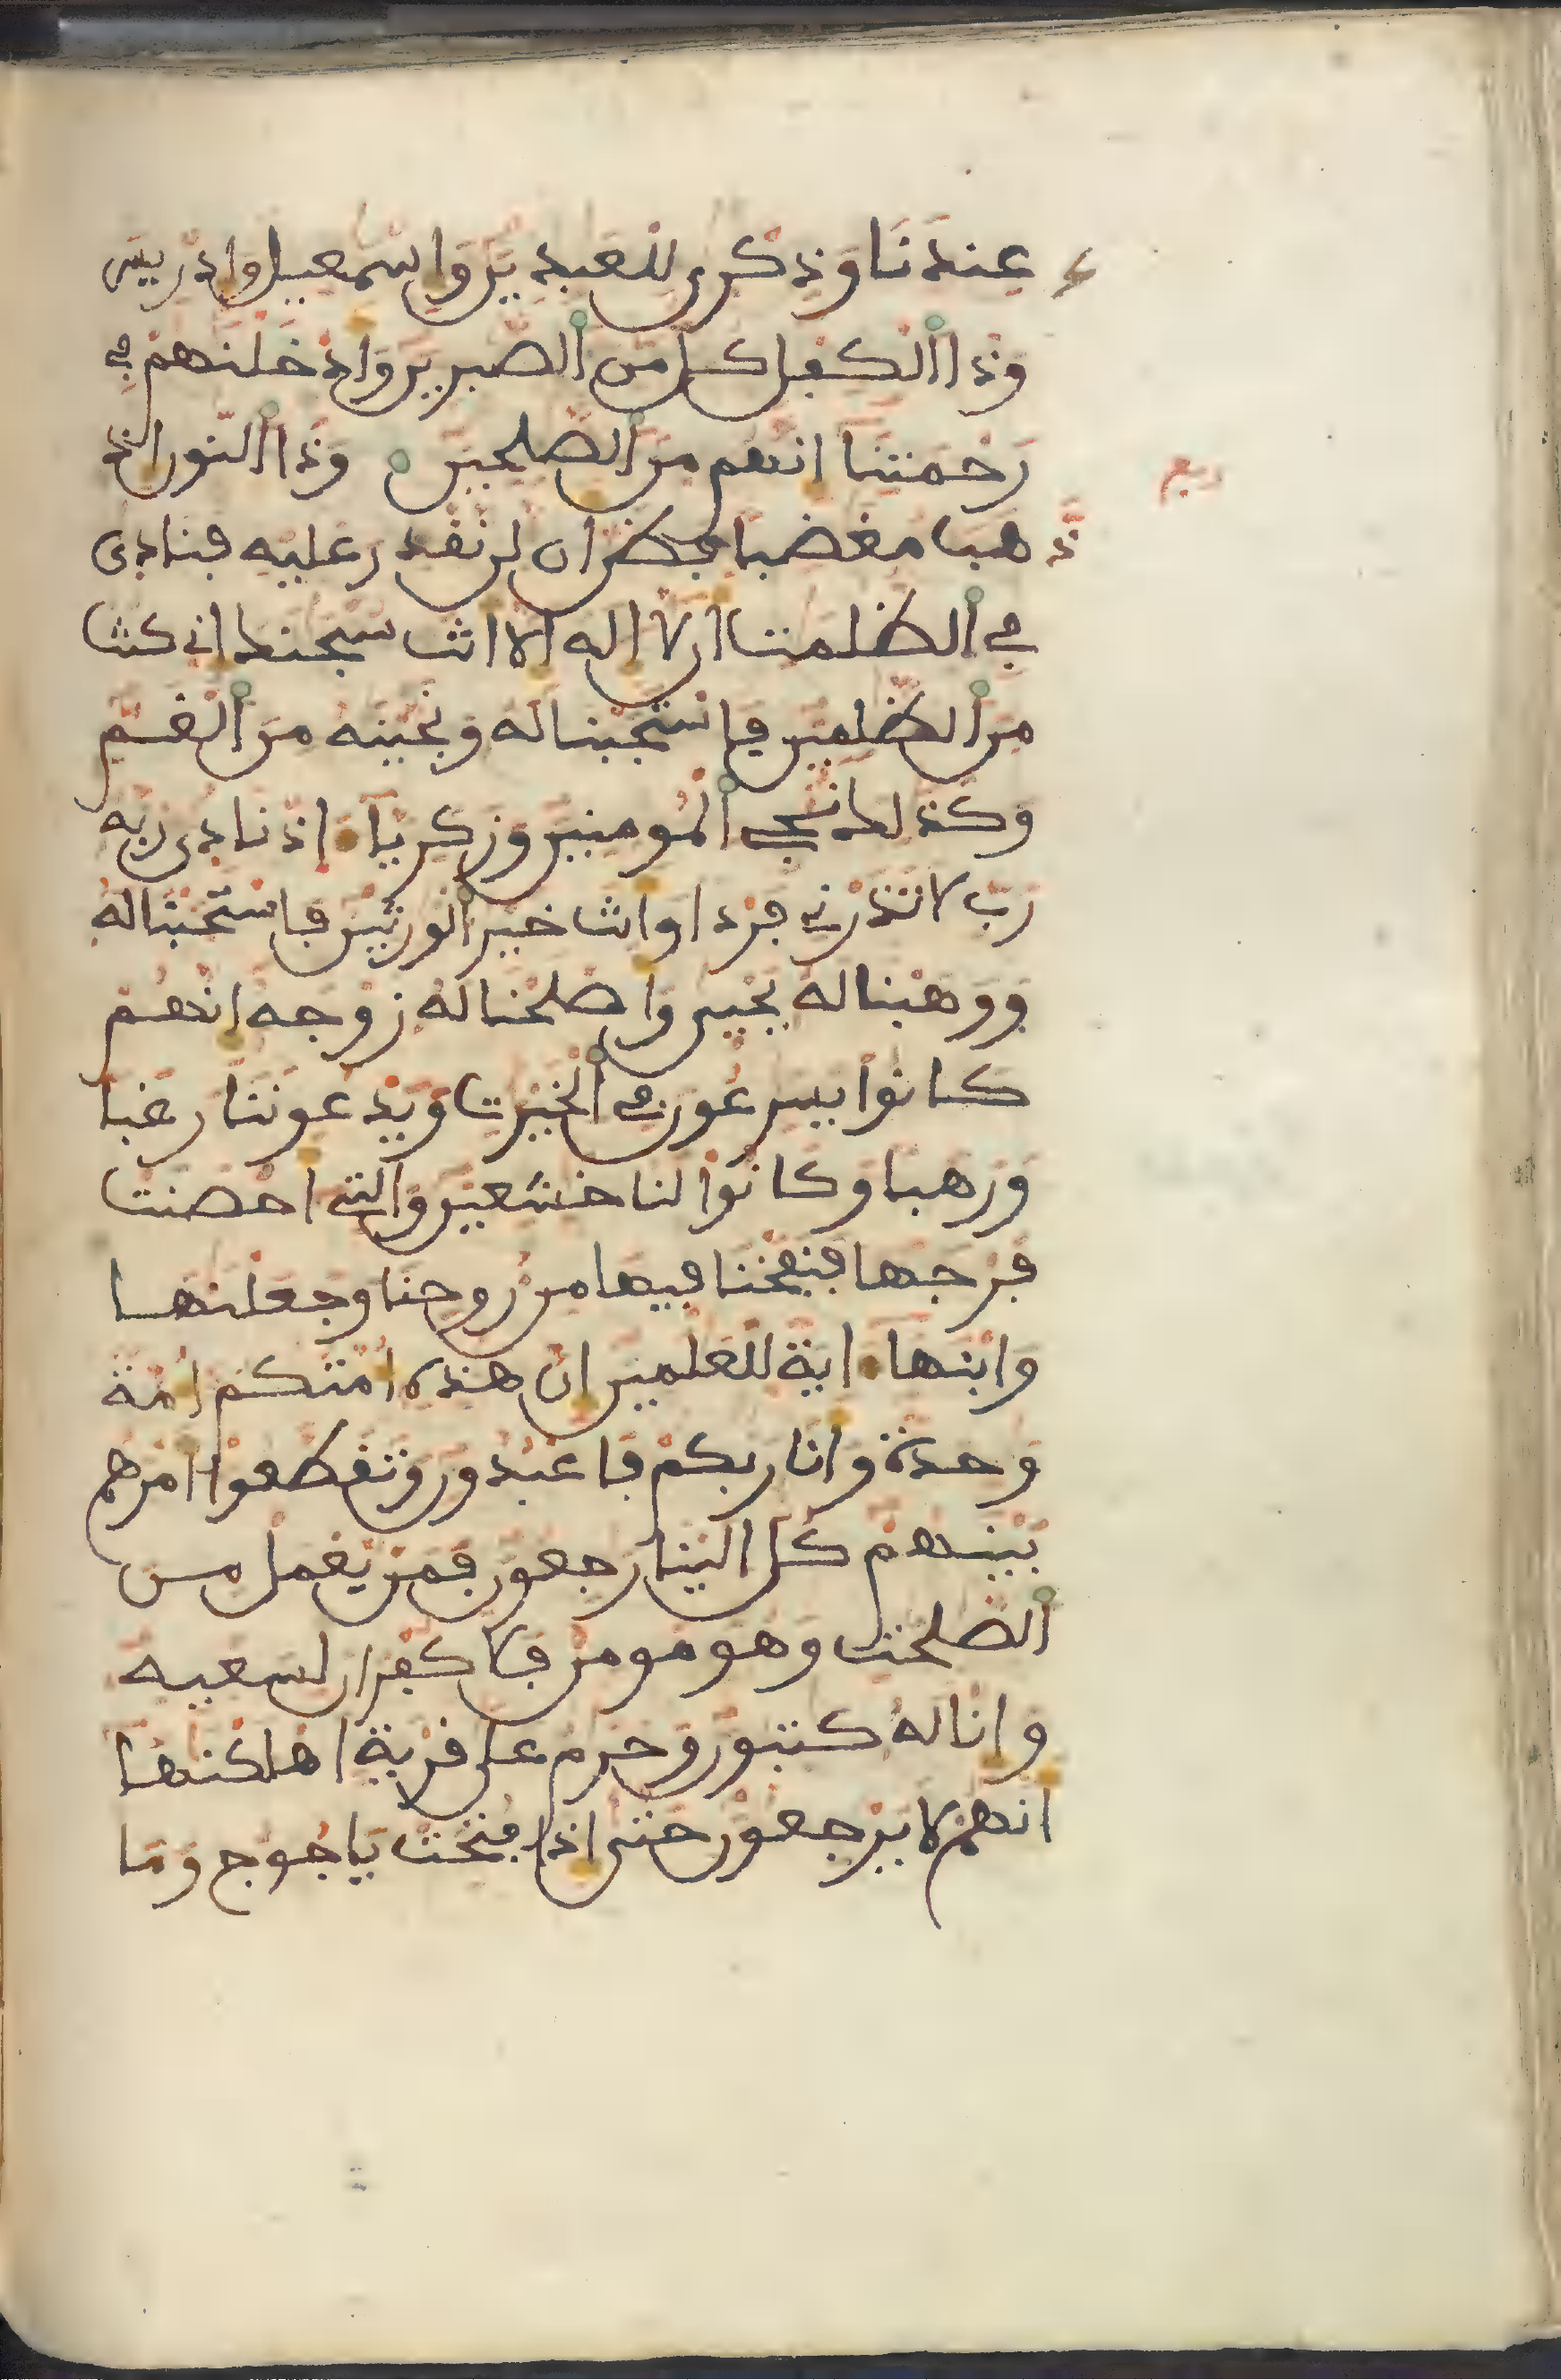 عندنا وذكرى للعبدين واسمعيل وادريس
وذا الكفل كل من الصبرين وادخلنهم في
رحمتنا انهم من الصلحين وذا النون اذ
ربع
ذهب مغضبا فظن ان لن نقدر عليه فنادى
في الظلمت ان لا اله الا انت سبحنك اني كنت
من الظلمين فاستجبنا له ونجينه من الغم
وكذلك نجي المومنين وزكرياء اذ نادى ربه
رب لا تذرني فردا وانت خير الورثين فاستجبنا له
ووهبنا له يحيى واصلحنا له زوجه انهم
كانوا يسرعون في الخيرت ويدعوننا رغبا
ورهبا وكانوا لنا خشعين والتي احصنت
فرجها فنفخنا فيها من روحنا وجعلنها
وابنها ءاية للعلمين ان هذه امتكم امة
وحدة وانا ربكم فاعبدون وتقطعوا امرهم
بينهم كل الينا رجعون فمن يعمل من
الصلحت وهو مومن فلا كفران لسعيه
وانا له كتبون وحرم على قرية اهلكنها
انهم لا يرجعون حتى اذا فتحت ياجوج وما